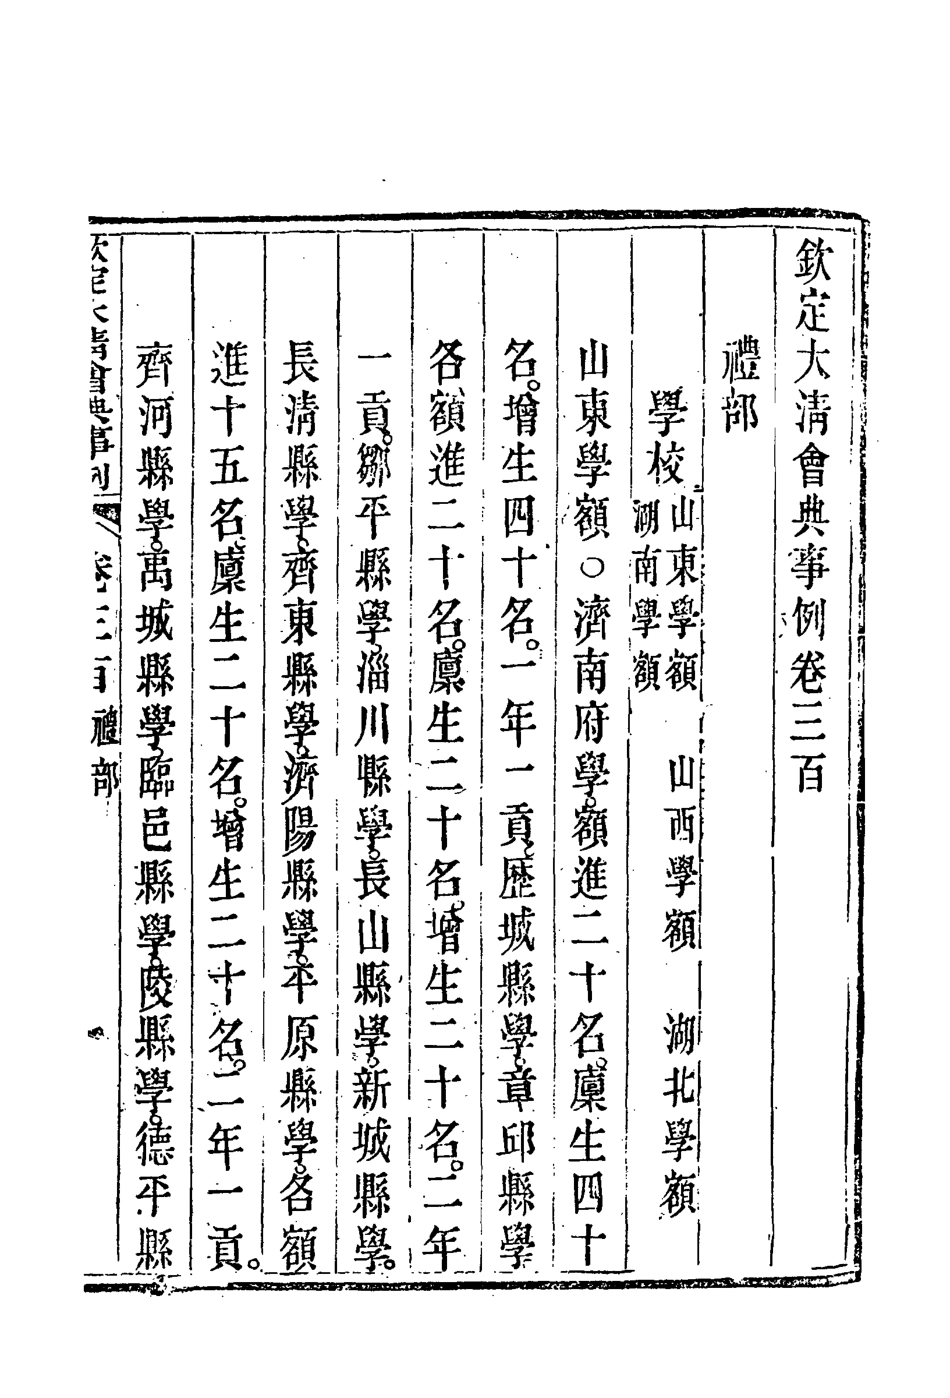 欽定大清會典事例卷三百
禮部
學校山東學額　山西學額　湖北學額
湖南學額
山東學額○濟南府學額進二十名。廩生四十
名。增生四十名。一年一貢。歷城縣學。章邱縣學
各額進二十名。廩生二十名。增生二十名。二年
一貢。鄒平縣學。淄川縣學。長山縣學。新城縣學。
長清縣學。齊東縣學。濟陽縣學。平原縣學。各額
進十五名。廩生二十名。增生二十名。二年一貢。
齊河縣學。禹城縣學。臨邑縣學。陵縣學。德平縣
欽定大清會典事例　卷三百禮部